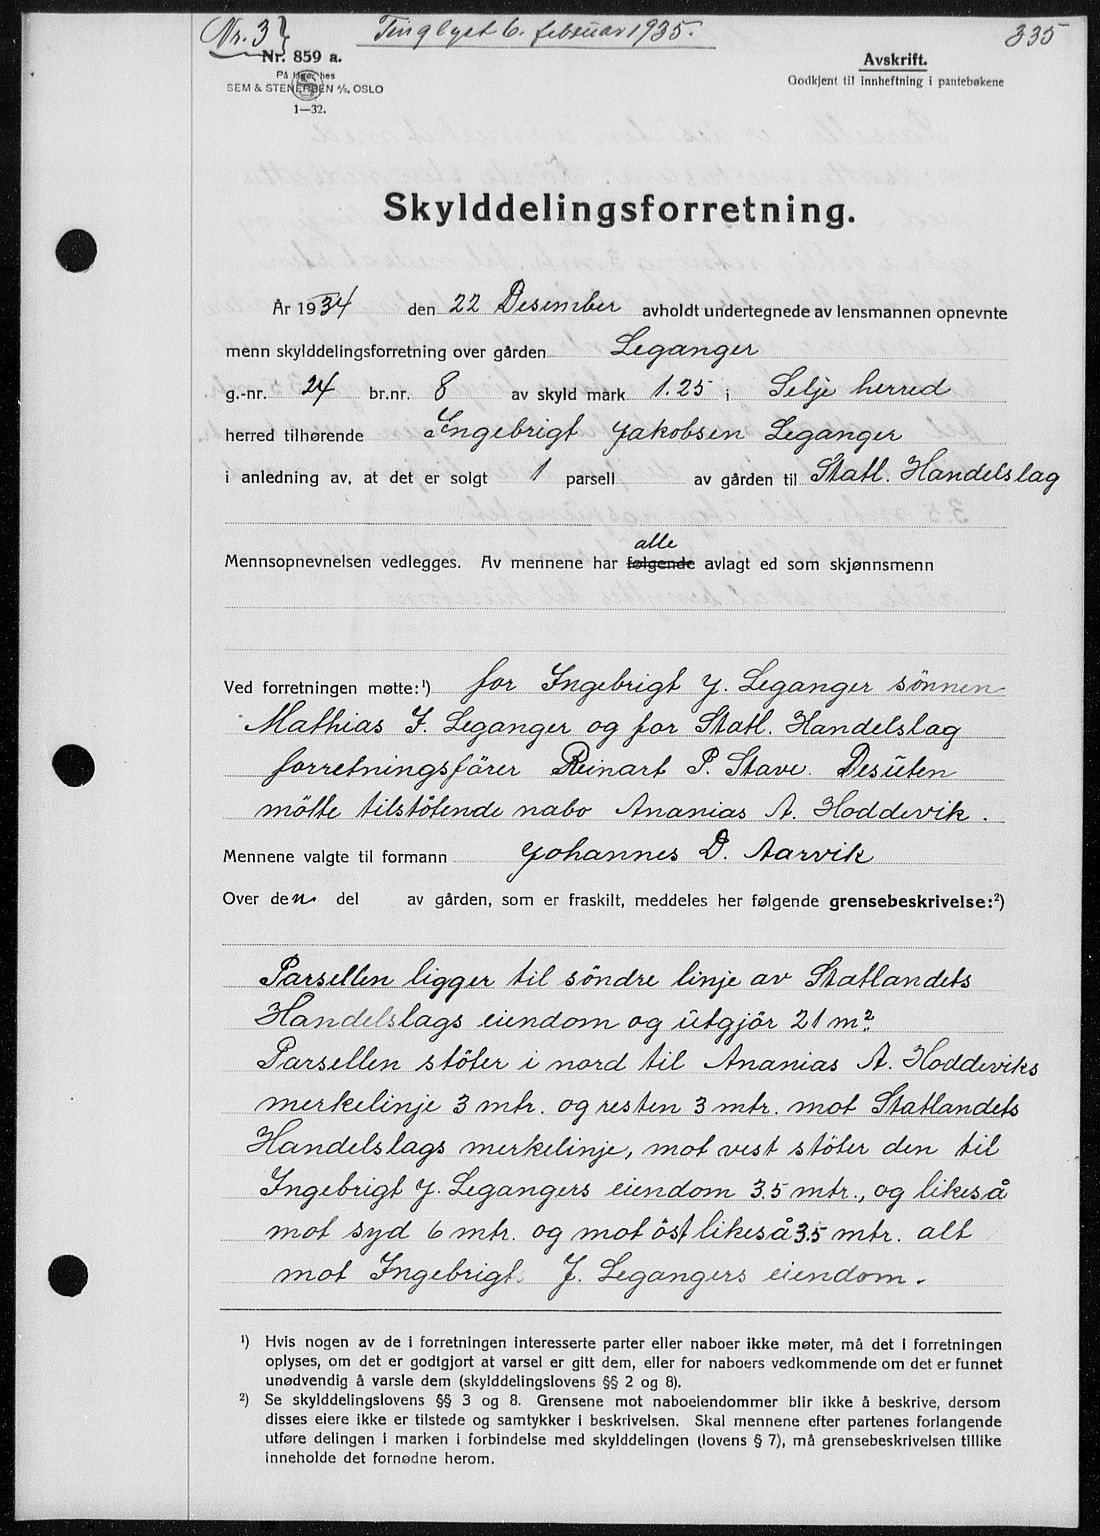 Nr. 37 Tinglyst 6. februar 1935. 335
Nr. 859 a.
SEM & STENERSEN A/S, OSLO
1—32.
Avskrift.
Godkjent til innheftning i pantebøkene
Skylddelingsforretning.
År 1934 den 22 Desember avholdt undertegnede av lensmannen opnevnte
menn skylddelingsforretning over gården Leganger
g.-nr. 24 br.nr. 8 av skyld mark 1.25 i Selje herred
herred tilhørende Ingebrigt Jakobsen Leganger
i anledning av, at det er solgt 1 parsell av gården til Statl. Handelslag
alle
Mennsopnevnelsen vedlegges. Av mennene har følgende avlagt ed som skjønnsmenn
Ved forretningen møtte:¹) for Ingebrigt J. Leganger sönnen
Mathias I. Leganger og for Statl. Handelslag
forretningsförer Reinart P. Stave. Desuten
mötte tilstötende nabo Ananias A. Hoddevik.
Mennene valgte til formann Johannes D. Aarvik
Over den del av gården, som er fraskilt, meddeles her følgende grensebeskrivelse:²)
Parsellen ligger til söndre linje av Statlandets
Handelslags eiendom og utgjör 21 m².
Parsellen stöter i nord til Ananias A. Hoddeviks
merkelinje 3 mtr. og resten 3 mtr. mot Statlandets
Handelslags merkelinje, mot vest stöter den til
Ingebrigt J. Legangers eiendom 3.5 mtr., og likeså
mot syd 6 mtr. og mot öst likeså 3.5 mtr. alt
mot Ingebrigt J. Legangers eiendom.
¹) Hvis nogen av de i forretningen interesserte parter eller naboer ikke møter, må det i forretningen
oplyses, om det er godtgjort at varsel er gitt dem, eller for naboers vedkommende om det er funnet
unødvendig å varsle dem (skylddelingslovens §§ 2 og 8).
²) Se skylddelingslovens §§ 3 og 8. Grensene mot naboeiendommer blir ikke å beskrive, dersom
disses eiere ikke er tilstede og samtykker i beskrivelsen. Skal mennene efter partenes forlangende
utføre delingen i marken i forbindelse med skylddelingen (lovens § 7), må grensebeskrivelsen tillike
inneholde det fornødne herom.